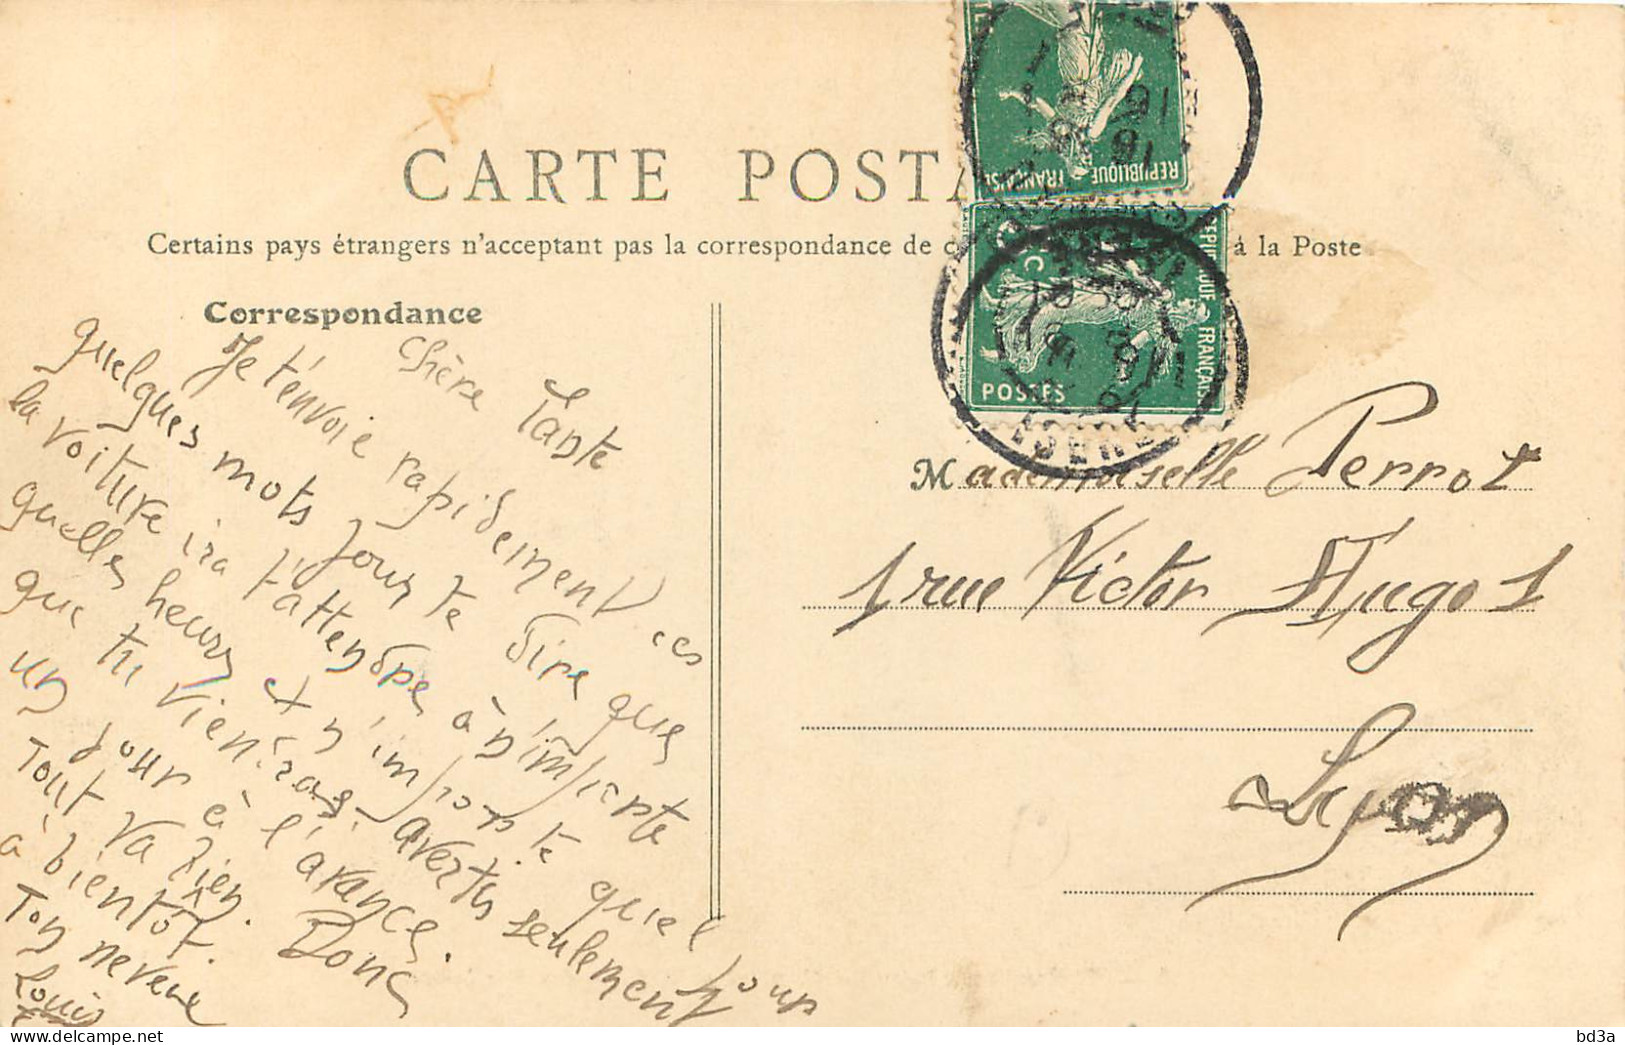 CARTE POSTA
Certains pays étrangers n'acceptent pas la correspondance de c à la Poste
Correspondance
Chère Tante
Je t'envoie rapidement ces
quelques mots pour te dire que
la voiture ira t'attendre à n'importe
quelles heures et n'importe quel jour
que tu viendras avertis seulement
un jour à l'avance. Donc
Tout va bien.
à bientôt.
Ton neveu
Louis
REPUBLIQUE FRANÇAISE
REPUBLIQUE FRANÇAISE
POSTES
Mademoiselle Perrot
1 rue Victor Hugo 1
Lyon
bd3a